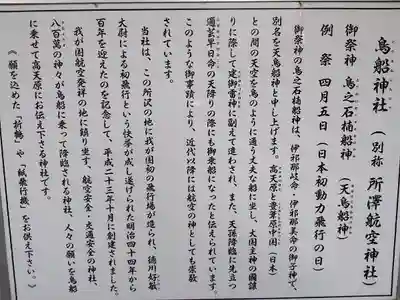 鳥船神社（別称 所澤航空神社）
御祭神 鳥之石楠船神（天鳥船神）
例祭 四月五日（日本初動力飛行の日）
御祭神の鳥之石楠船神は、伊邪那岐命・伊邪那美命の御子神で、
別名を天鳥船神と申し上げます。高天原と豊葦原中国（日本）
との間の天空を鳥のように通う丈夫な船に坐し、大国主神の國譲
りに際して建御雷神に副えて遣わされ、また、天孫降臨に先立つ
邇芸早日命の天降りの際にも御乗船になったと伝えられています。
このような御事蹟により、近代以降には航空の神としても崇敬
されています。
当社は、この所沢の地に我が国初の飛行場が造られ、徳川好敏
大尉による初飛行という快挙が成し遂げられた明治四十四年から
百年を迎えたのを記念して、平成二十三年十月に創建されました。
我が国航空発祥の地に鎮り坐す、航空安全・交通安全の神社、
八百萬の神々が鳥船に乗って降臨される神社、人々の願いを鳥船
に乗せて高天原にお伝え下さる神社です。
《願を込めた「折鶴」や「紙飛行機」をお供え下さい。》